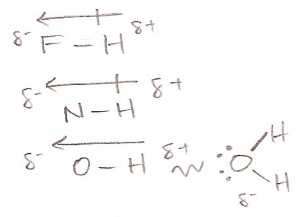 δ- F - H δ+
δ- N - H δ+
δ- O - H δ+
H
:O:
H
δ-